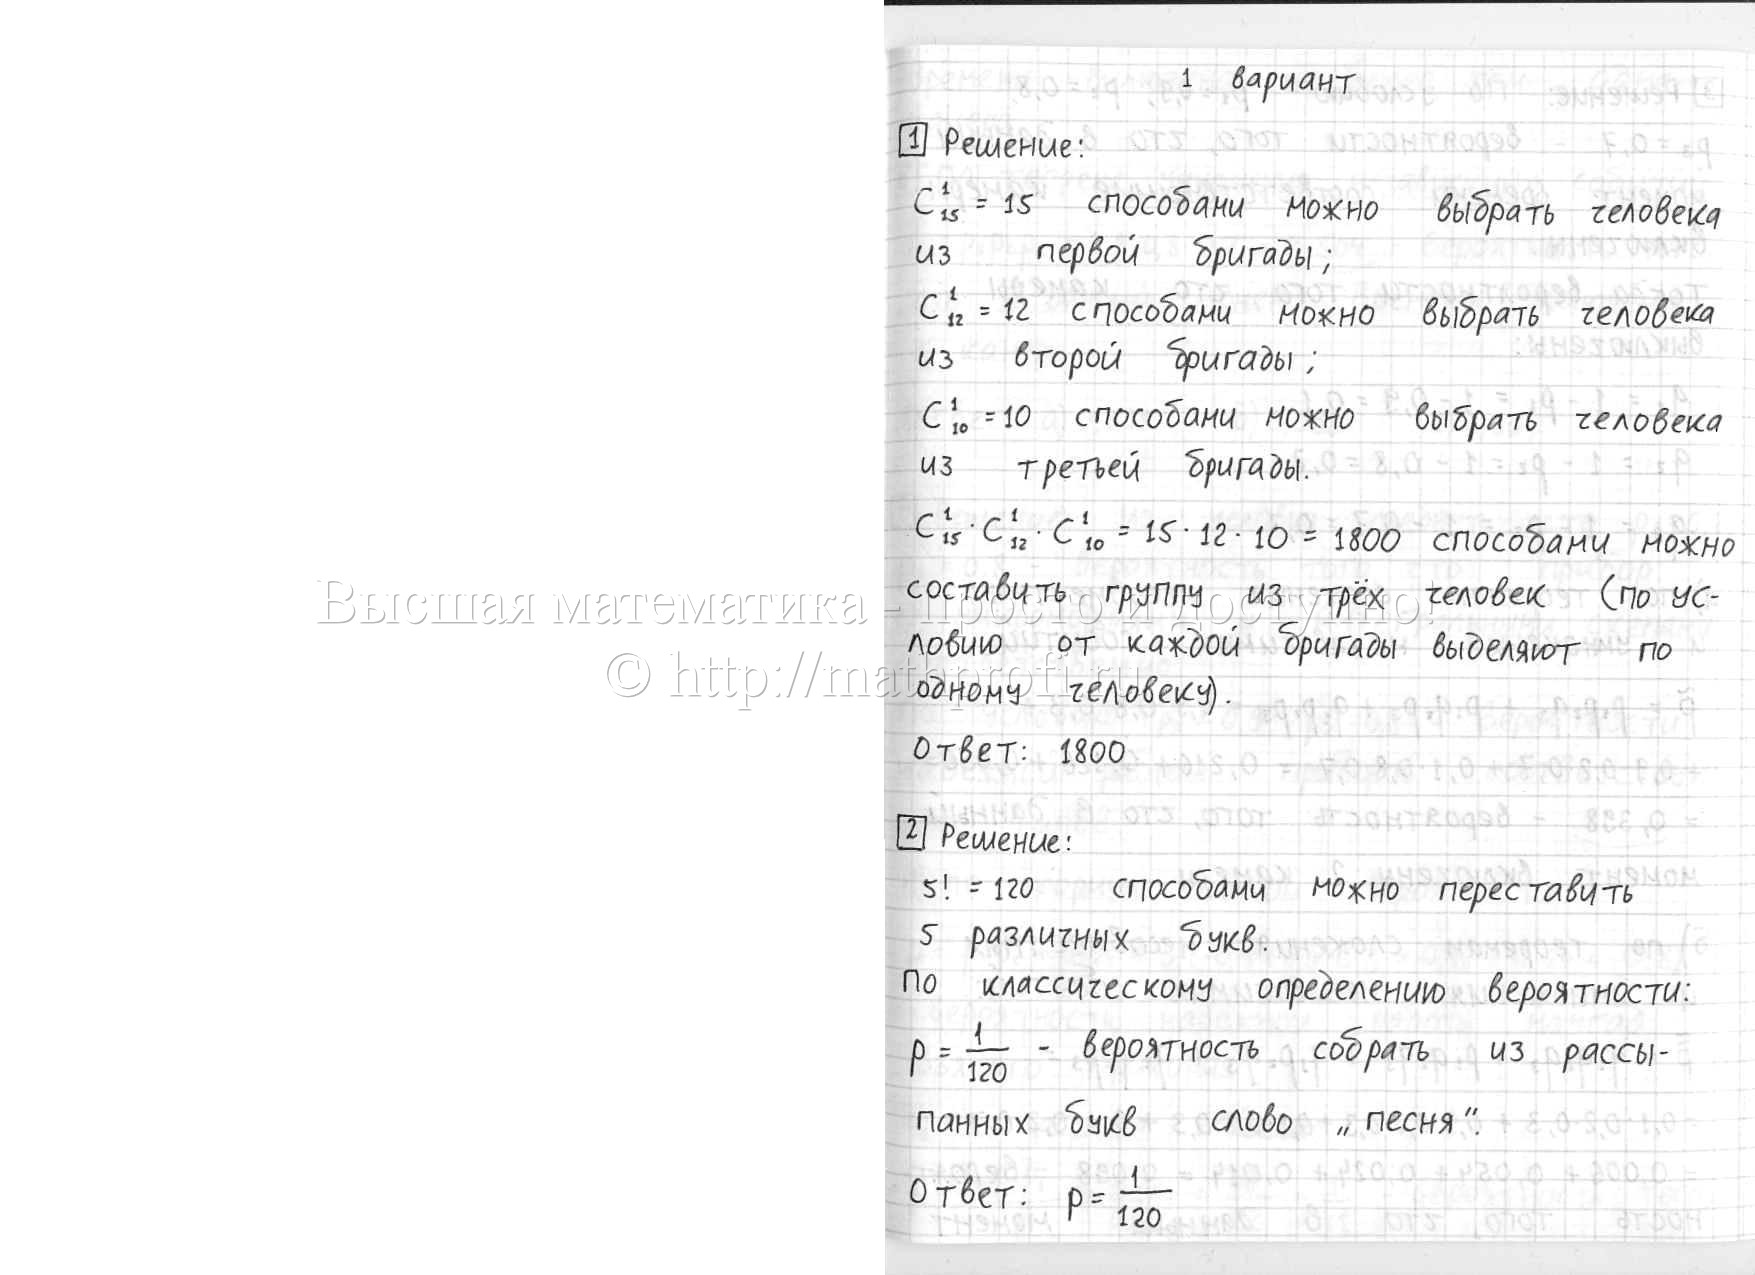 1 вариант
1 Решение:
C¹₁₅ = 15 способами можно выбрать человека
из первой бригады;
C¹₁₂ = 12 способами можно выбрать человека
из второй бригады;
C¹₁₀ = 10 способами можно выбрать человека
из третьей бригады.
C¹₁₅ · C¹₁₂ · C¹₁₀ = 15 · 12 · 10 = 1800 способами можно
составить группу из трёх человек (по ус-
Высшая математика - просто и доступно!
ловию от каждой бригады выделяют по
© http://mathprofi.ru
одному человеку).
Ответ: 1800
2 Решение:
5! = 120 способами можно переставить
5 различных букв.
По классическому определению вероятности:
p = 1/120 - вероятность собрать из рассы-
панных букв слово „песня".
Ответ: p = 1/120